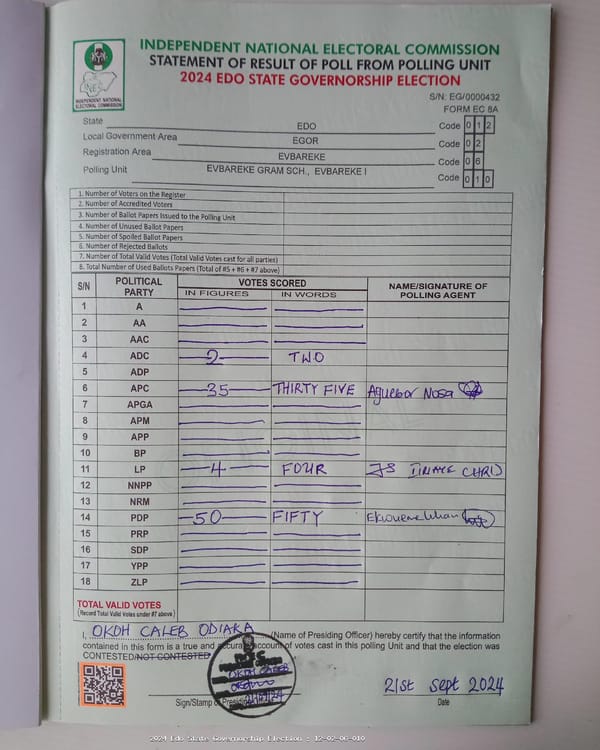 INDEPENDENT NATIONAL ELECTORAL COMMISSION
STATEMENT OF RESULT OF POLL FROM POLLING UNIT
2024 EDO STATE GOVERNORSHIP ELECTION
INDEPENDENT NATIONAL ELECTORAL COMMISSION
S/N: EG/0000432
FORM EC 8A
State EDO Code 0 1 2
Local Government Area EGOR Code 0 2
Registration Area EVBAREKE Code 0 6
Polling Unit EVBAREKE GRAM SCH., EVBAREKE I Code 0 1 0
1. Number of Voters on the Register
2. Number of Accredited Voters
3. Number of Ballot Papers Issued to the Polling Unit
4. Number of Unused Ballot Papers
5. Number of Spoiled Ballot Papers
6. Number of Rejected Ballots
7. Number of Total Valid Votes (Total Valid Votes cast for all parties)
8. Total Number of Used Ballots Papers (Total of #5 + #6 + #7 above)
S/N POLITICAL PARTY VOTES SCORED NAME/SIGNATURE OF POLLING AGENT
IN FIGURES IN WORDS
1 A
2 AA
3 AAC
4 ADC 2 TWO
5 ADP
6 APC 35 THIRTY FIVE Aguebor Nosa
7 APGA
8 APM
9 APP
10 BP
11 LP 4 FOUR
12 NNPP
13 NRM
14 PDP 50 FIFTY
15 PRP
16 SDP
17 YPP
18 ZLP
TOTAL VALID VOTES
(Record Total Valid Votes under #7 above)
I, OKOH CALEB ODIAKA (Name of Presiding Officer) hereby certify that the information
contained in this form is a true and accurate account of votes cast in this polling Unit and that the election was
CONTESTED/NOT CONTESTED
OKOH CALEB
21st Sept 2024
Sign/Stamp of Presiding Date
2024 Edo State Governorship Election : 12-02-06-010